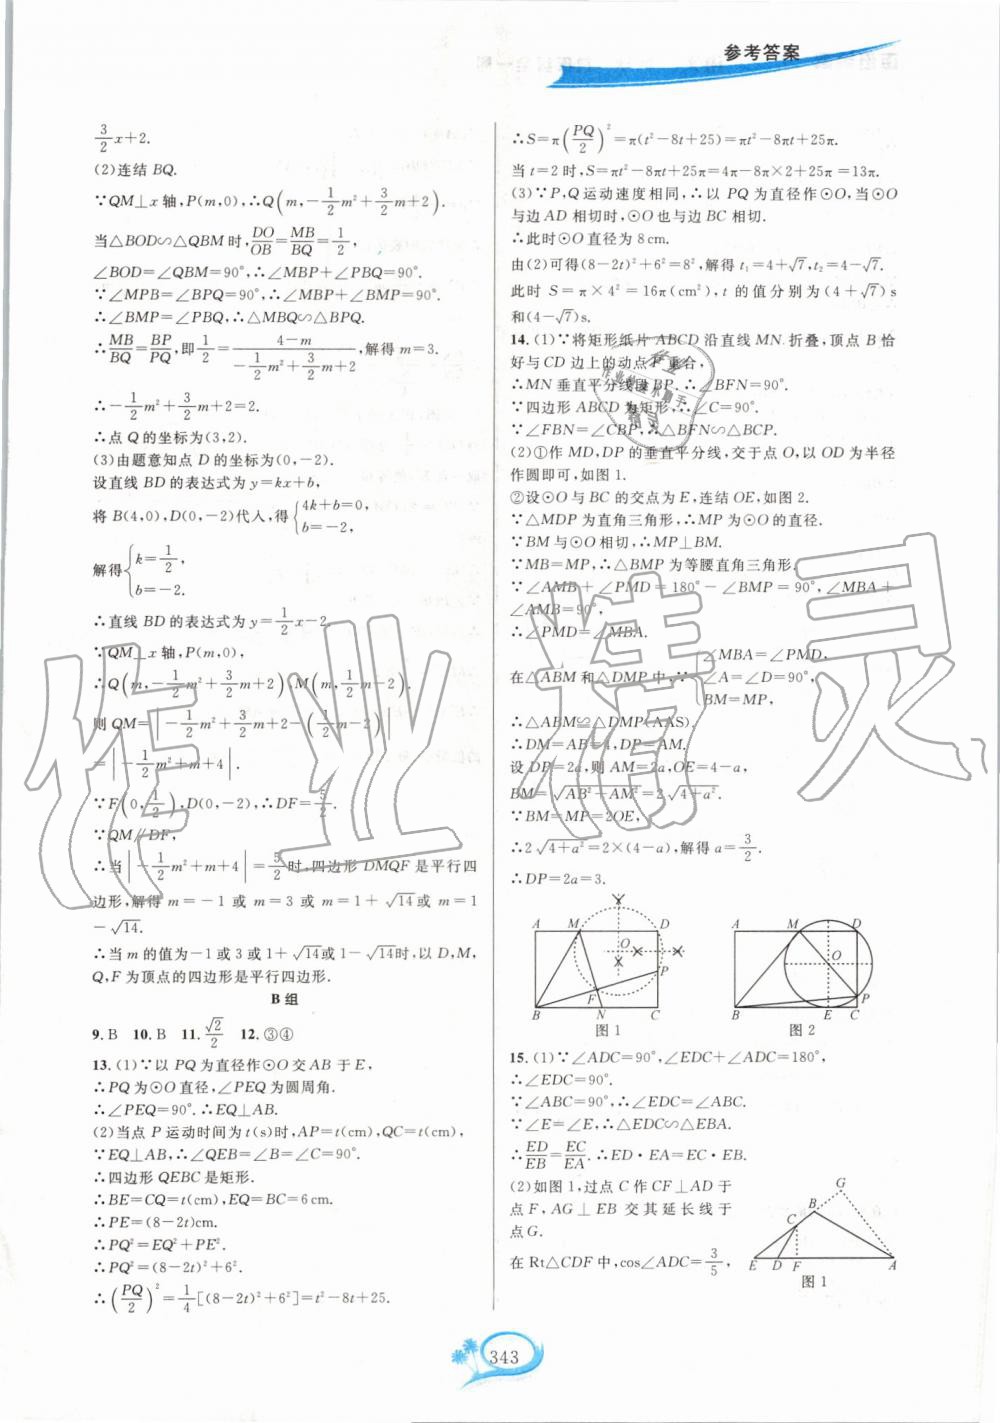 参考答案
3/2 x+2.
(2)连结 BQ.
∵QM⊥x 轴,P(m,0),∴Q(m,-1/2 m²+3/2 m+2).
当△BOD∽△QBM 时,DO/OB=MB/BQ=1/2,
∠BOD=∠QBM=90°,∴∠MBP+∠PBQ=90°.
∵∠MPB=∠BPQ=90°,∴∠MBP+∠BMP=90°.
∴∠BMP=∠PBQ,∴△MBQ∽△BPQ.
∴MB/BQ=BP/PQ,即1/2=(4-m)/(-1/2 m²+3/2 m+2),解得 m=3.
∴-1/2 m²+3/2 m+2=2.
∴点 Q 的坐标为(3,2).
(3)由题意知点 D 的坐标为(0,-2).
设直线 BD 的表达式为 y=kx+b,
将 B(4,0),D(0,-2)代人,得{4k+b=0, b=-2,
解得{k=1/2, b=-2.
∴直线 BD 的表达式为 y=1/2 x-2.
∵QM⊥x 轴,P(m,0),
∴Q(m,-1/2 m²+3/2 m+2),M(m,1/2 m-2).
则 QM=|-1/2 m²+3/2 m+2-(1/2 m-2)|
=|-1/2 m²+m+4|.
∵F(0,1/2),D(0,-2),∴DF=5/2.
∵QM∥DF,
∴当|-1/2 m²+m+4|=5/2时,四边形 DMQF 是平行四
边形,解得 m=-1 或 m=3 或 m=1+√14或 m=1
-√14.
∴当 m 的值为-1 或 3 或 1+√14或 1-√14时,以 D,M,
Q,F 为顶点的四边形是平行四边形.
B 组
9. B 10. B 11. √2/2 12. ③④
13. (1)∵以 PQ 为直径作⊙O 交 AB 于 E,
∴PQ 为⊙O 直径,∠PEQ 为圆周角.
∴∠PEQ=90°.∴EQ⊥AB.
(2)当点 P 运动时间为 t(s)时,AP=t(cm),QC=t(cm),
∵EQ⊥AB,∴∠QEB=∠B=∠C=90°.
∴四边形 QEBC 是矩形.
∴BE=CQ=t(cm),EQ=BC=6 cm.
∴PE=(8-2t)cm.
∵PQ²=EQ²+PE².
∴PQ²=(8-2t)²+6².
∴(PQ/2)²=1/4[(8-2t)²+6²]=t²-8t+25.
∴S=π(PQ/2)²=π(t²-8t+25)=πt²-8πt+25π.
当 t=2 时,S=πt²-8πt+25π=4π-8π×2+25π=13π.
(3)∵P,Q 运动速度相同,∴以 PQ 为直径作⊙O,当⊙O
与边 AD 相切时,⊙O 也与边 BC 相切.
∴此时⊙O 直径为 8 cm.
由(2)可得(8-2t)²+6²=8²,解得 t₁=4+√7,t₂=4-√7.
此时 S=π×4²=16π(cm²),t 的值分别为(4+√7)s
和(4-√7)s.
14. (1)∵将矩形纸片 ABCD 沿直线 MN 折叠,顶点 B 恰
好与 CD 边上的动点 P 重合,
∴MN 垂直平分线段 BP.∴∠BFN=90°.
∵四边形 ABCD 为矩形,∴∠C=90°.
∵∠FBN=∠CBP,∴△BFN∽△BCP.
(2)①作 MD,DP 的垂直平分线,交于点 O,以 OD 为半径
作圆即可,如图 1.
②设⊙O 与 BC 的交点为 E,连结 OE,如图 2.
∵△MDP 为直角三角形,∴MP 为⊙O 的直径.
∵BM 与⊙O 相切,∴MP⊥BM.
∵MB=MP,∴△BMP 为等腰直角三角形.
∵∠AMB+∠PMD=180°-∠BMP=90°,∠MBA+
∠AMB=90°,
∴∠PMD=∠MBA.
在△ABM 和△DMP 中,∵{∠MBA=∠PMD, ∠A=∠D=90°, BM=MP,
∴△ABM≌△DMP(AAS).
∴DM=AB=4,DP=AM.
设 DP=2a,则 AM=2a,OE=4-a,
BM=√(AB²+AM²)=2√(4+a²).
∵BM=MP=2OE,
∴2√(4+a²)=2×(4-a),解得 a=3/2.
∴DP=2a=3.
A M D O P F B N C
图 1
A M D O P B E C
图 2
15. (1)∵∠ADC=90°,∠EDC+∠ADC=180°,
∴∠EDC=90°.
∵∠ABC=90°,∴∠EDC=∠ABC.
∵∠E=∠E,∴△EDC∽△EBA.
∴ED/EB=EC/EA.∴ED·EA=EC·EB.
(2)如图 1,过点 C 作 CF⊥AD 于
点 F,AG⊥EB 交其延长线于
点 G.
在 Rt△CDF 中,cos∠ADC=3/5,
G B C E D F A
图 1
343
作业精灵